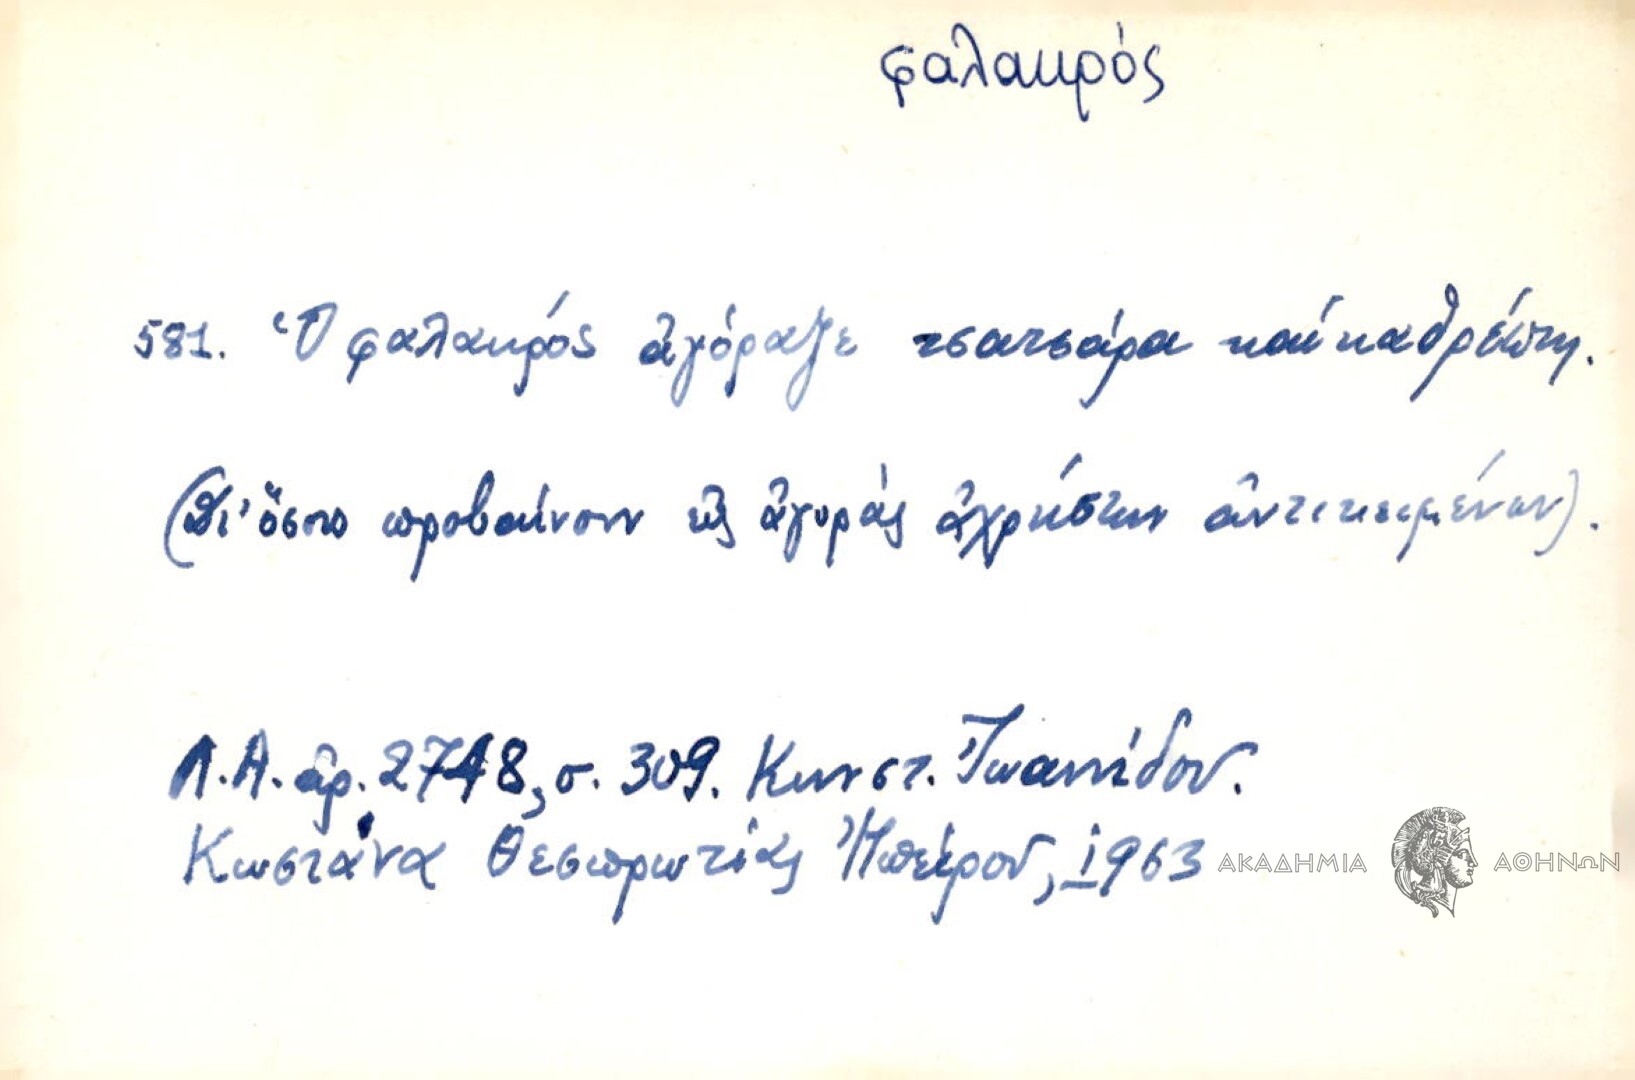 φαλακρός
581. Ὁ φαλακρός ἀγόραζε τσατσάρα καί καθρέπτη.
(Δι' ὅσους προβαίνουν εἰς ἀγοράς ἀχρήστων ἀντικειμένων).
Λ.Α. ἀρ. 2748, σ. 309. Κωνστ. Ἰωαννίδου.
Κωστάνα Θεσπρωτίας Ἠπείρου, 1963
ΑΚΑΔΗΜΙΑ ΑΘΗΝΩΝ